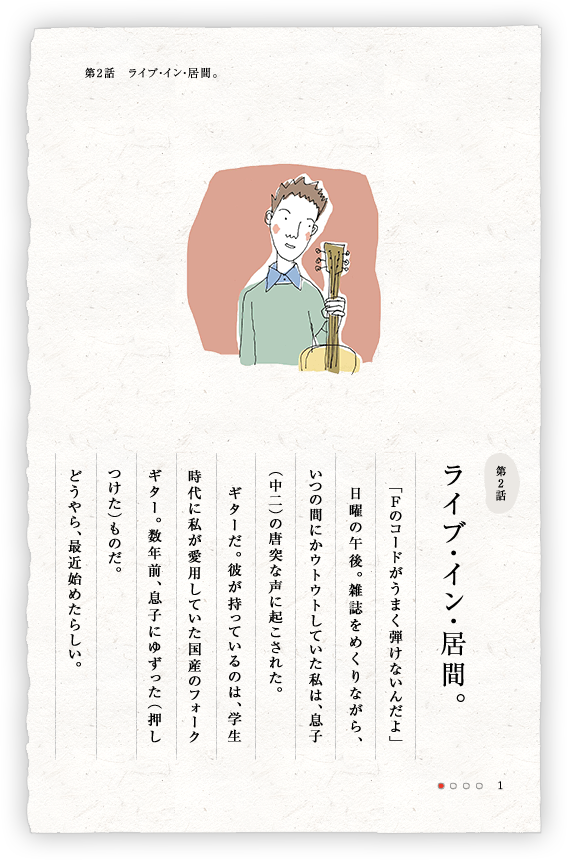 第2話 ライブ・イン・居間。
第2話
ライブ・イン・居間。
「Fのコードがうまく弾けないんだよ」
日曜の午後。雑誌をめくりながら、
いつの間にかウトウトしていた私は、息子
(中二)の唐突な声に起こされた。
ギターだ。彼が持っているのは、学生
時代に私が愛用していた国産のフォーク
ギター。数年前、息子にゆずった(押し
つけた)ものだ。
どうやら、最近始めたらしい。
1